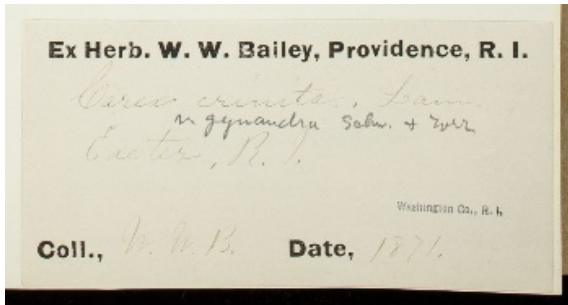 Ex Herb. W. W. Bailey, Providence, R. I.
Carex crinita, Lam.
v gynandra Schw. & Torr
Exeter, R. I.
Washington Co., R. I.
Coll., W. W. B. Date, 1871.